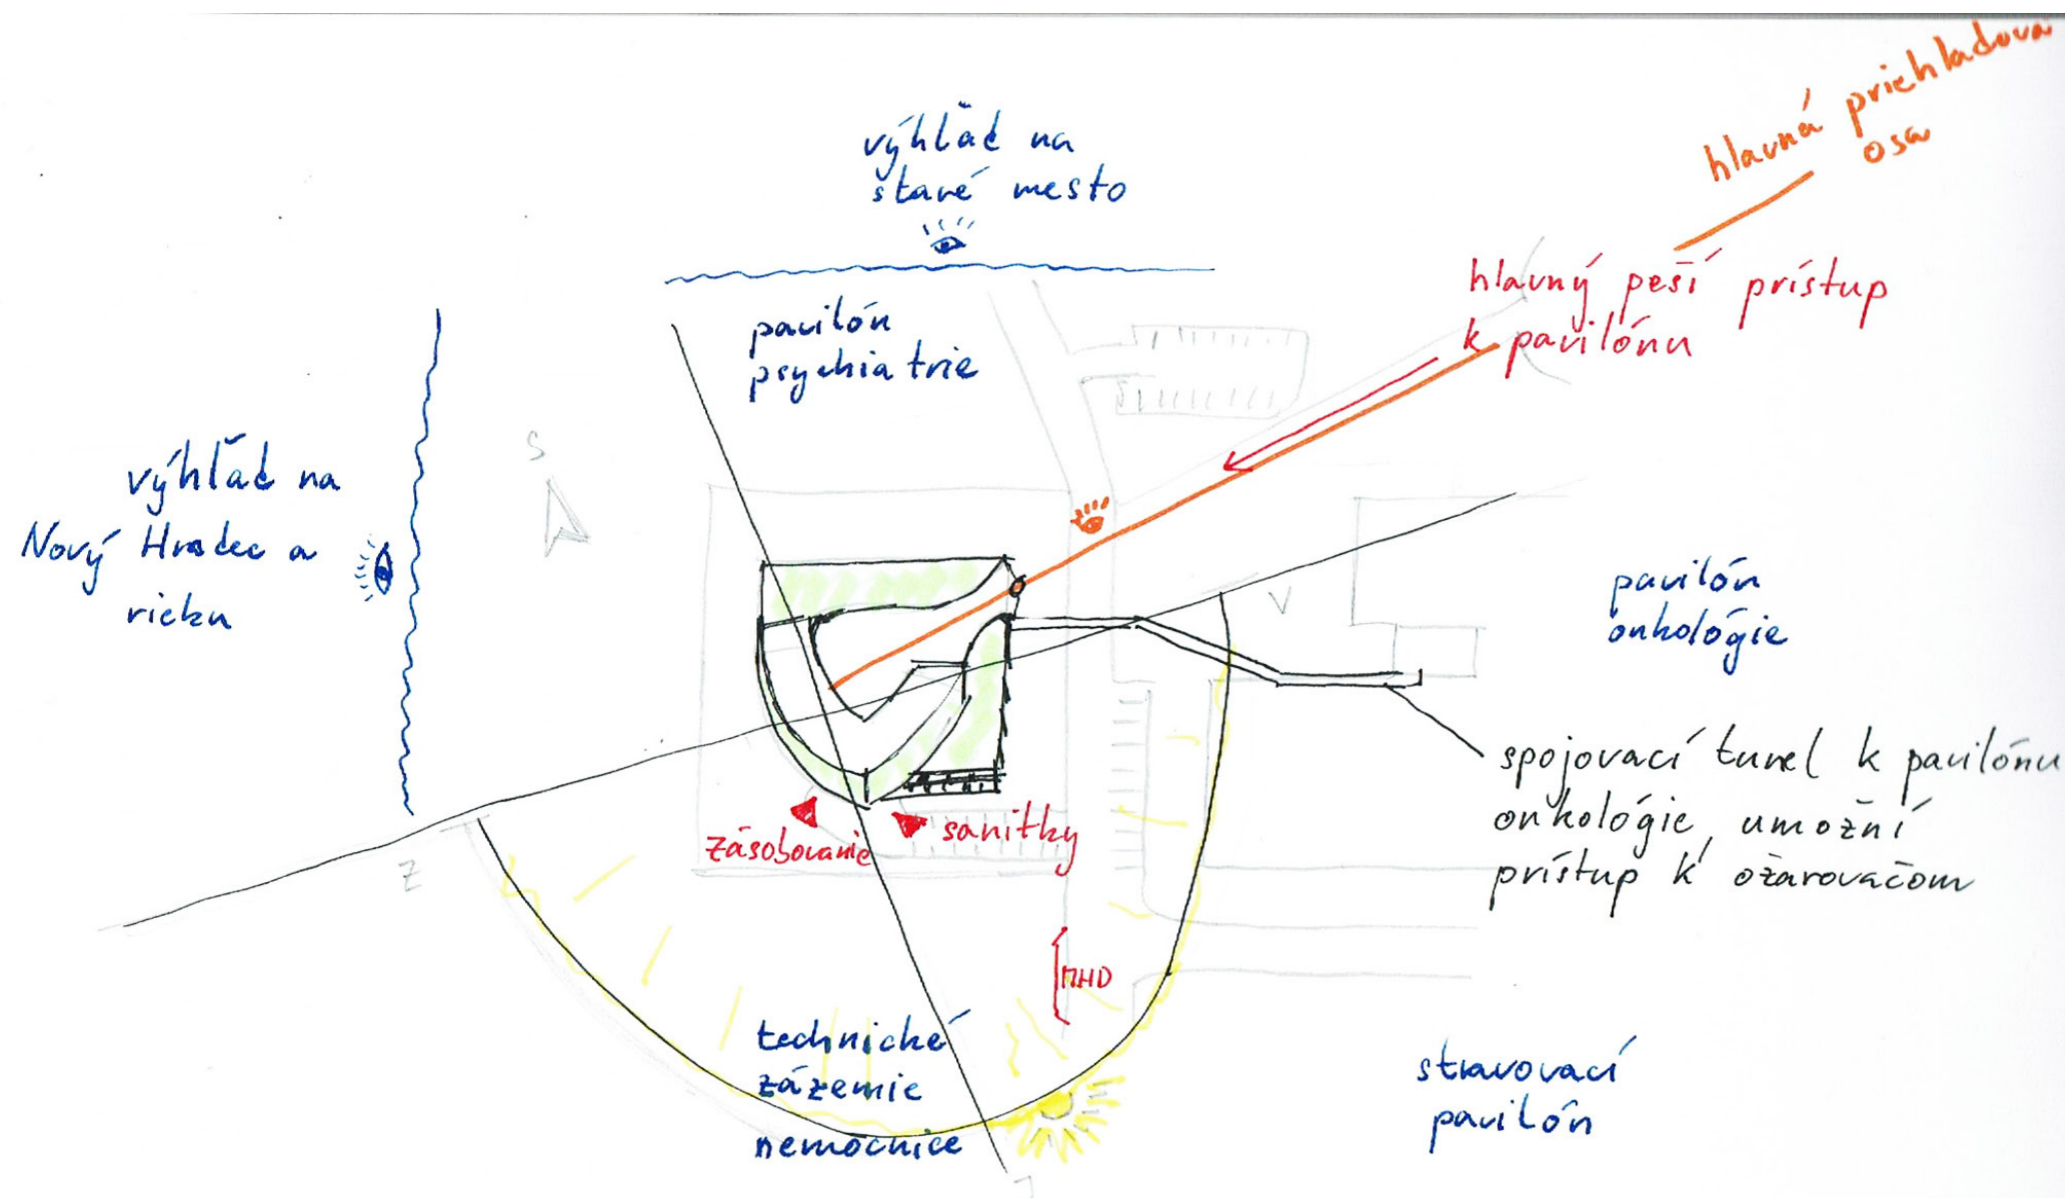 hlavná priehladová
osa
výhľad na
staré mesto
hlavný peší prístup
k pavilónu
pavilón
psychiatrie
S
výhľad na
Nový Hradec a
rieku
V
pavilón
onkológie
spojovací tunel k pavilónu
onkológie, umožní
prístup k ožarovačom
zásobovanie
sanitky
Z
MHD
technické
zázemie
nemocnice
stravovací
pavilón
J